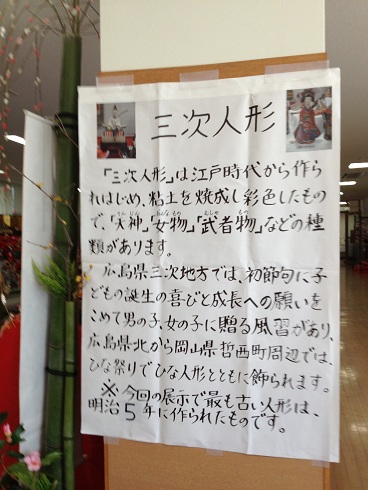 三次人形
「三次人形」は江戸時代から作ら
れはじめ、粘土を焼成し彩色したもの
で、「天神」「女物」「武者物」などの種
類があります。
広島県三次地方では、初節句に子
どもの誕生の喜びと成長への願いを
こめて男の子、女の子に贈る風習があり、
広島県北から岡山県哲西町周辺では、
ひな祭りでひな人形とともに飾られます。
※今回の展示で最も古い人形は、
明治5年に作られたものです。